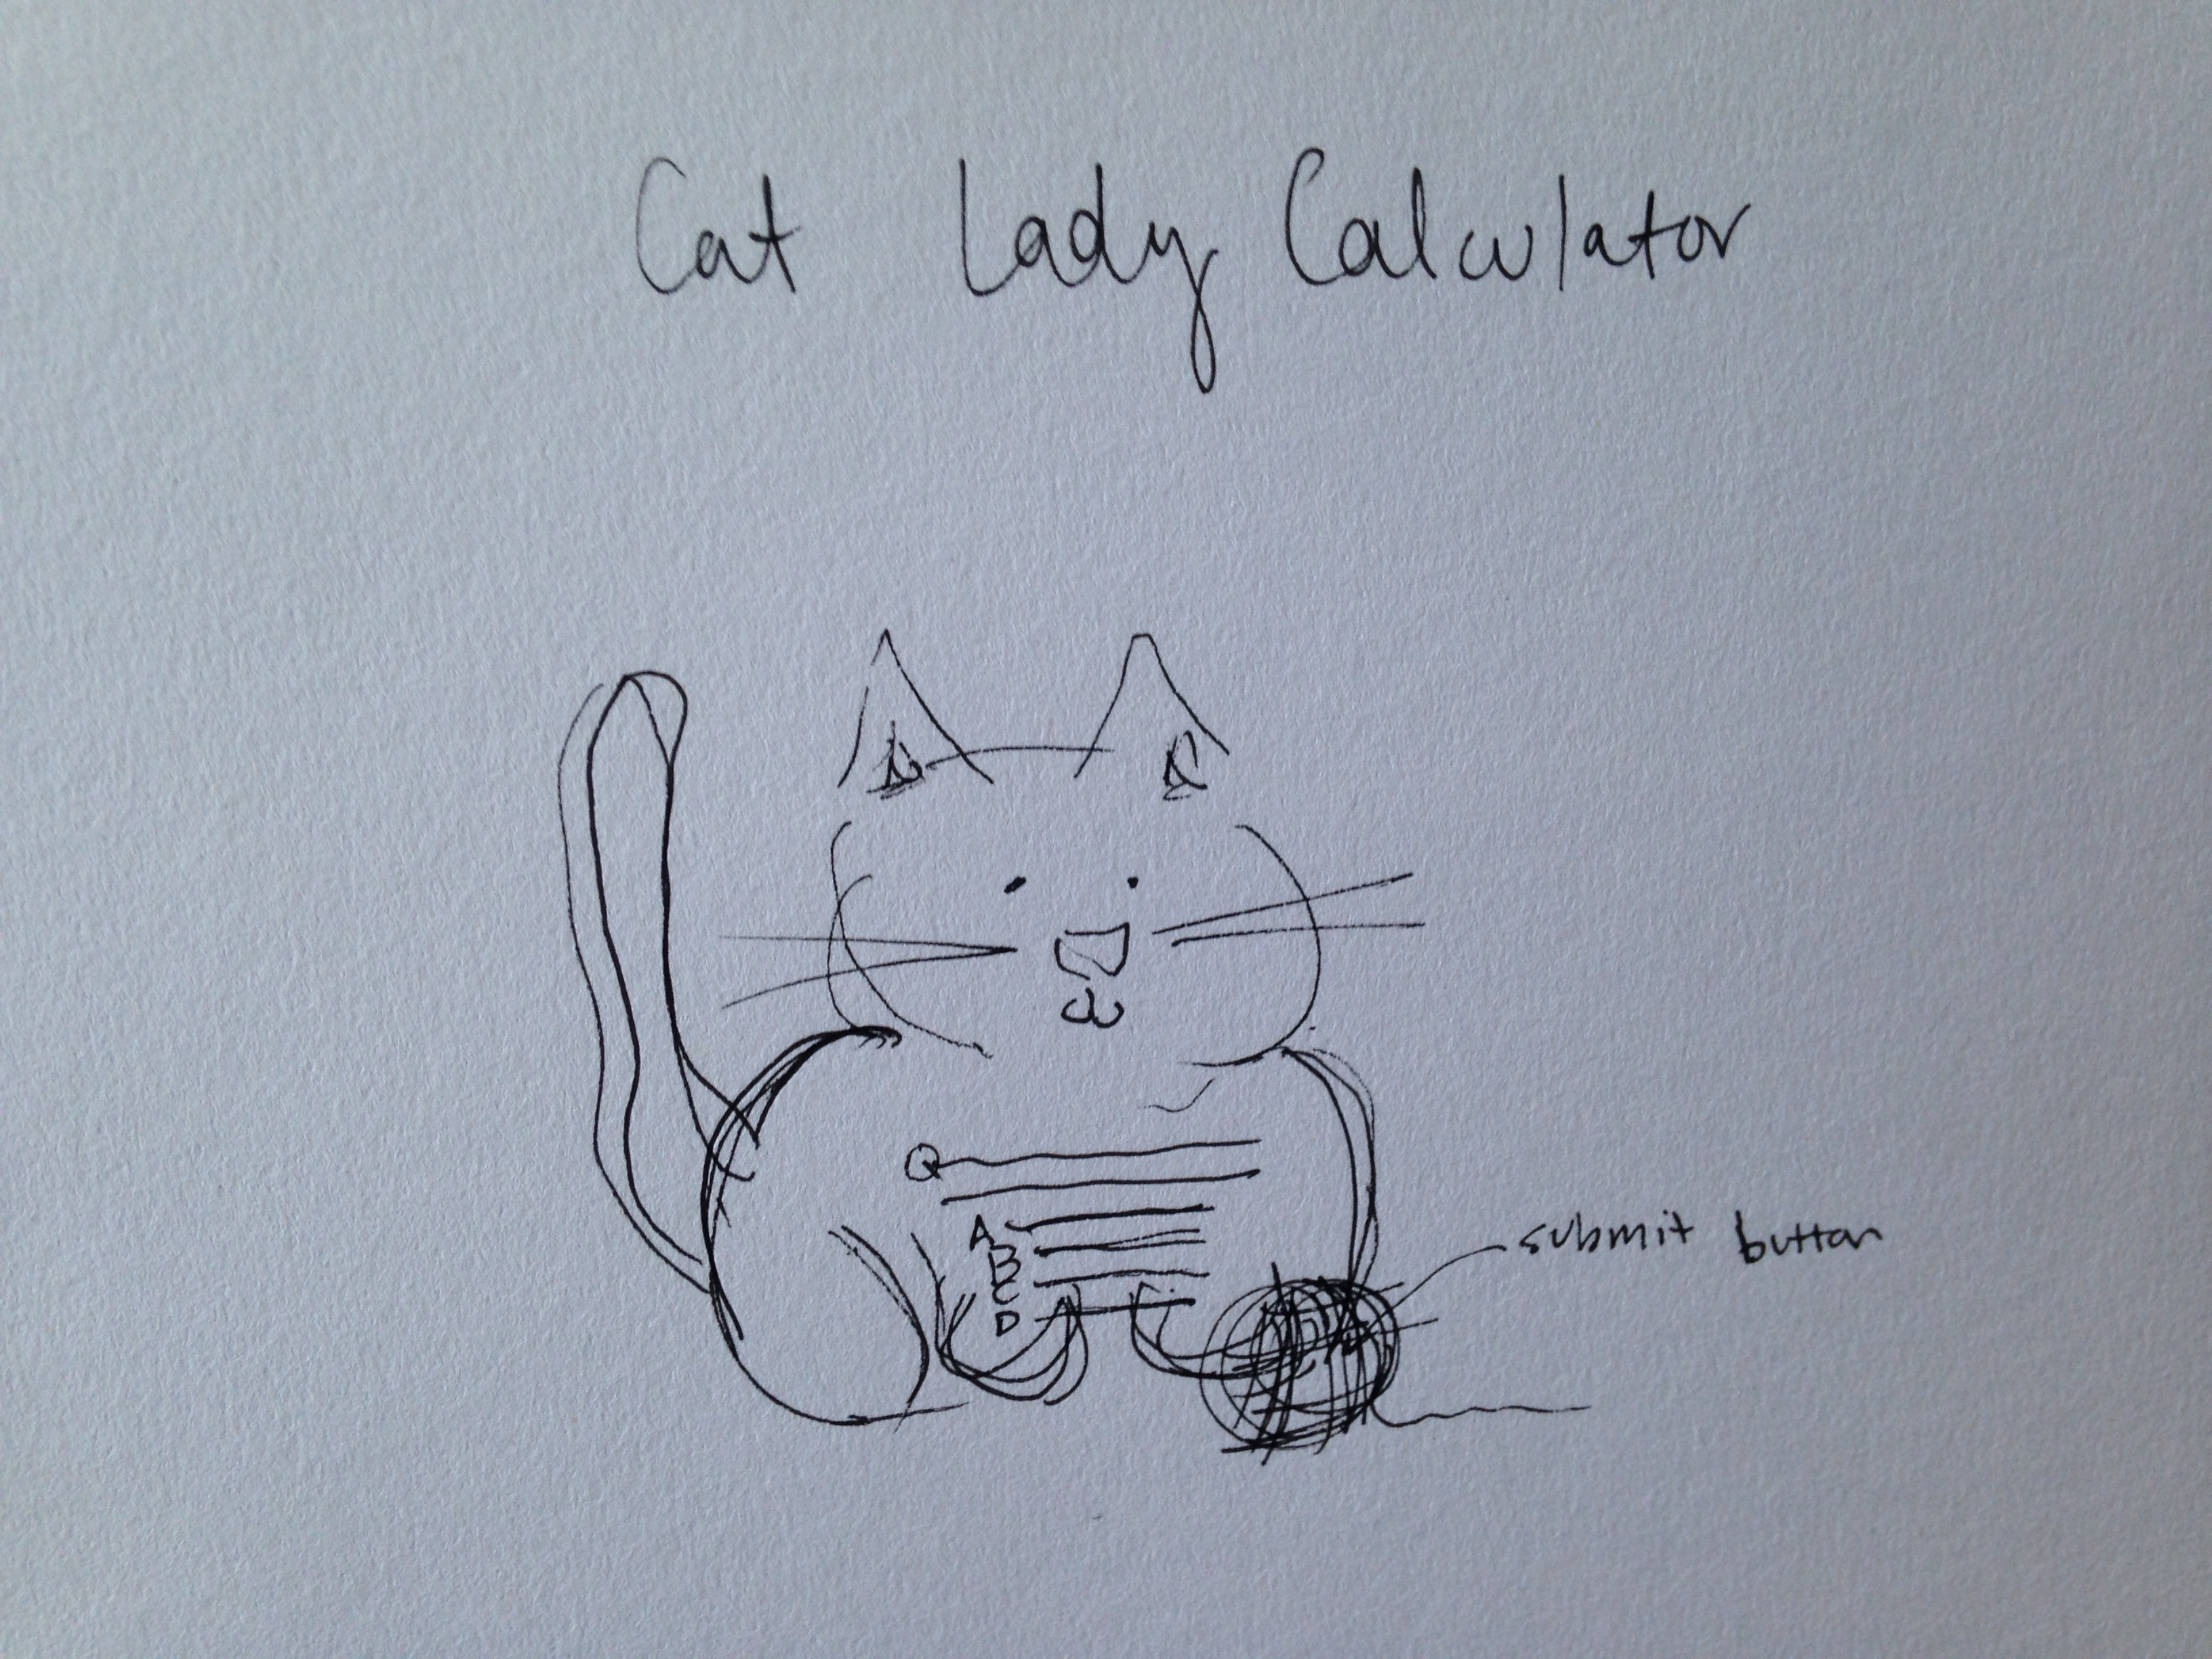 Cat Lady Calculator
Q
A
B
C
D
submit button